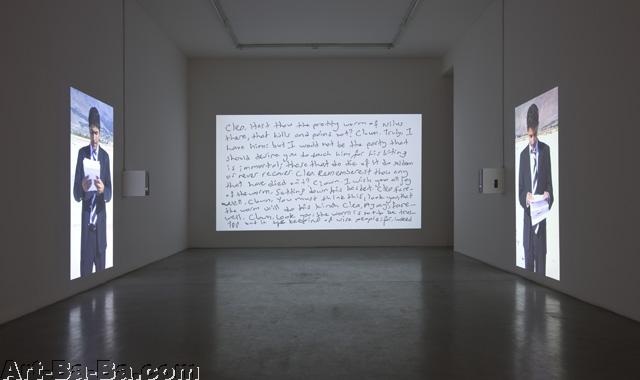 Cleo. Hast thou the pretty worm of Nilus
there, that kills and pains not? Clown. Truly, I
have him: but I would not be the party that
should desire you to touch him, for his biting
is immortal; those that do die of it do seldom
or never recover. Cleo. Rememberest thou any
that have died on't? Clown. I wish you all joy
of the worm. Setting down his basket. Cleo. Fare-
well. Clown. You must think this, look you, that
the worm will do his kind. Cleo. Ay, ay; fare-
well. Clown. Look you, the worm is not to be trus-
ted but in the keeping of wise people; for, indeed
Art-Ba-Ba.com